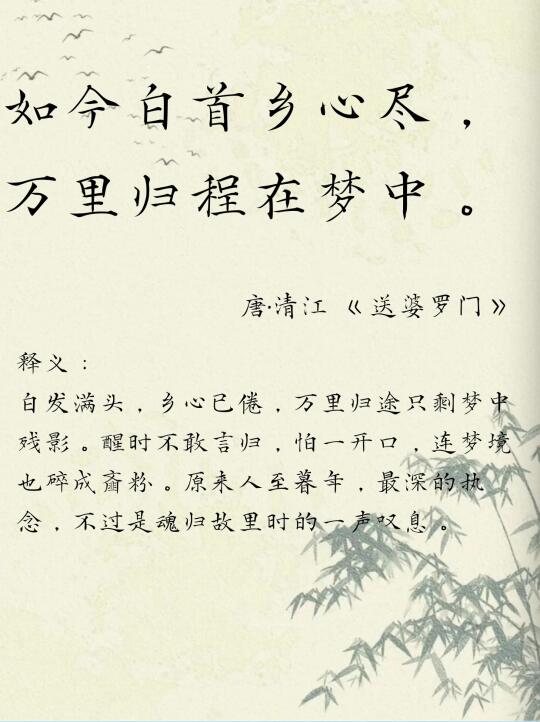 如今白首乡心尽，
万里归程在梦中。
唐·清江《送婆罗门》
释义：
白发满头，乡心已倦，万里归途只剩梦中
残影。醒时不敢言归，怕一开口，连梦境
也碎成齑粉。原来人至暮年，最深的执
念，不过是魂归故里时的一声叹息。